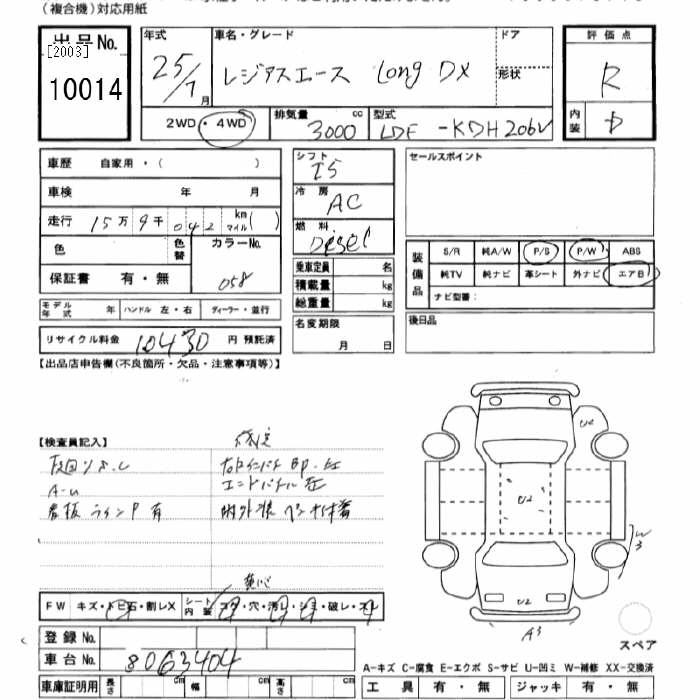 (複合機)対応用紙
出品No.
[2003]
10014
年式
25/7月
車名・グレード
レジアスエース Long DX
ドア
形状
評価点
R
内装
D
2WD・4WD
排気量
3000cc
型式
LDF-KDH206V
車歴 自家用・( )
車検 年 月
走行 15万9千042km マイル( )
色
色替
カラーNo.
058
保証書 有・無
モデル年式 年 ハンドル 左・右 ディーラー・並行
リサイクル料金 10430円 預託済
シフト
I5
冷房
AC
燃料
Diesel
乗車定員 名
積載量 kg
総重量 kg
名変期限
月 日
セールスポイント
装備品
S/R 純A/W P/S P/W ABS
純TV 純ナビ 革シート 外ナビ エアB
ナビ型番:
後日品
【出品店申告欄(不良箇所・欠品・注意事項等)】
【検査員記入】
A-U
看板 ラインP 有
U2
U2
U2
W3
A3
FW キズ・トビ石・割レX
シート内装 コゲ・穴・汚レ・シミ・破レ・スレ
登録No.
車台No.
8063404
車庫証明用 長さ cm 幅 cm 高さ cm
スペア
A-キズ C-腐食 E-エクボ S-サビ U-凹ミ W-補修 XX-交換済
工具 有・無 ジャッキ 有・無